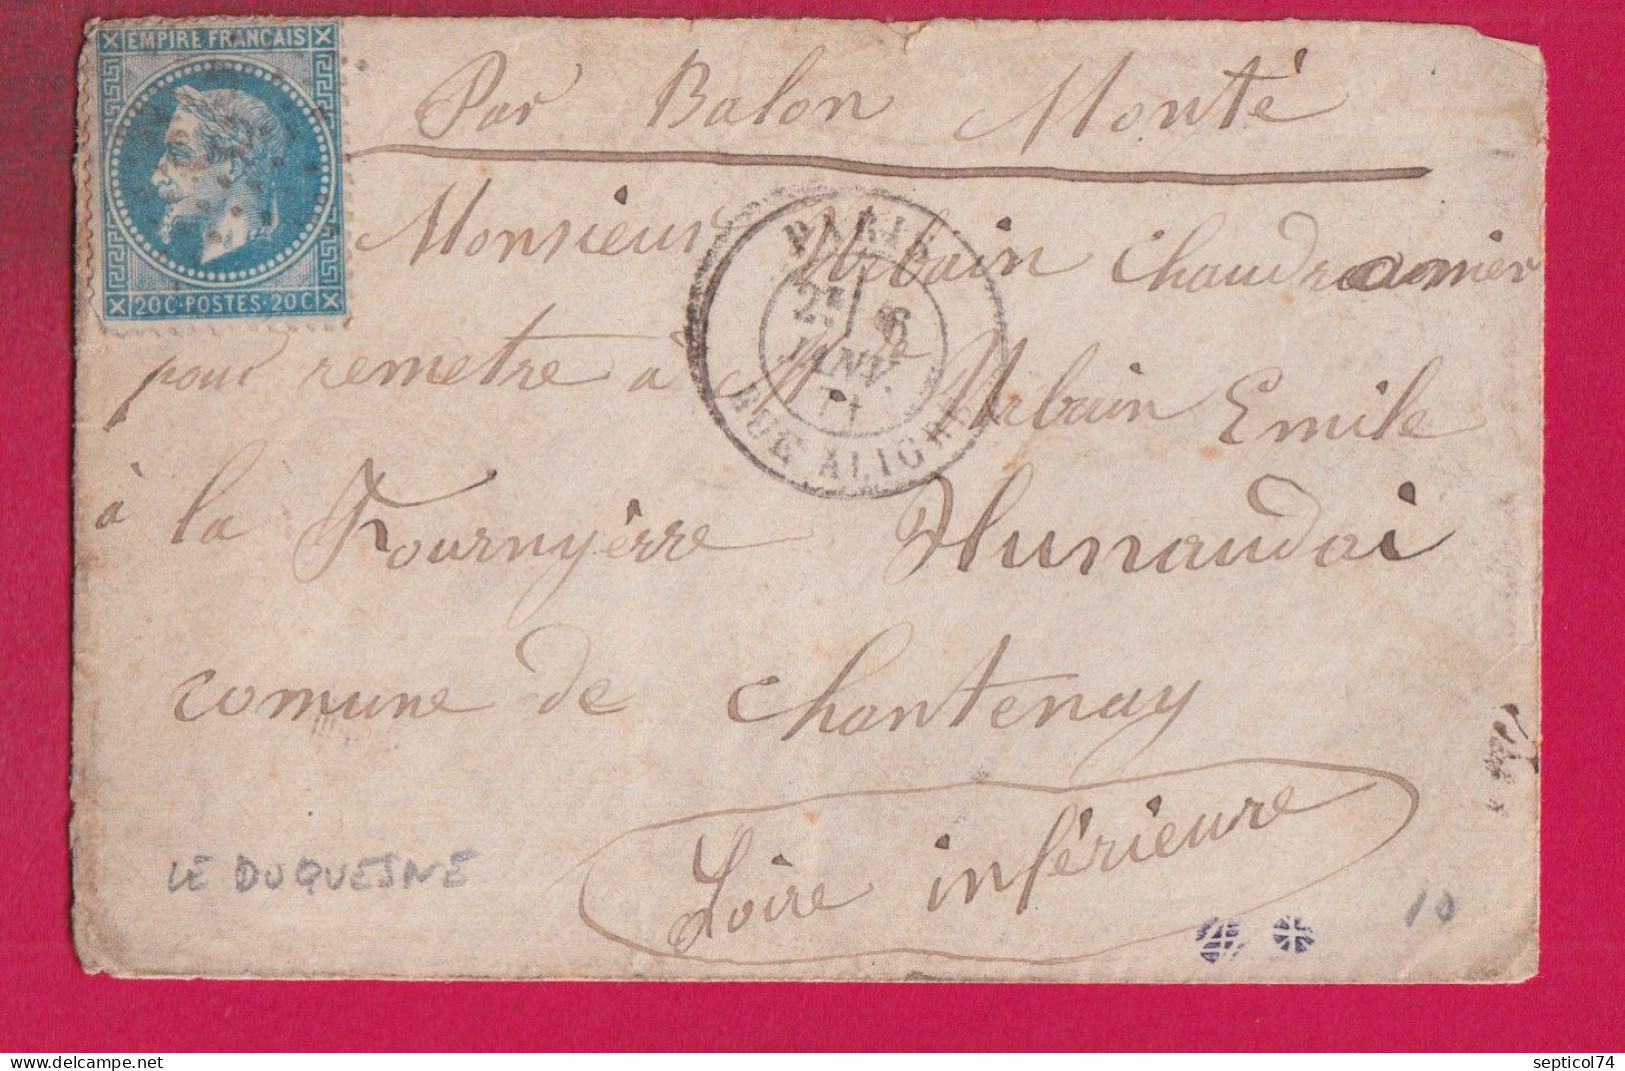 EMPIRE FRANCAIS
20C·POSTES·20C
Par Balon Monté
Monsieur Urbain Chaudronnier
PARIS
2E 6
JANV.
71
RUE ALIGRE
pour remetre a Mr Urbain Emile
à la Fournyèrre Hunaudai
comune de Chantenay
Loire inférieure
LE DUQUESNE
10
delcampe.net
septicol74